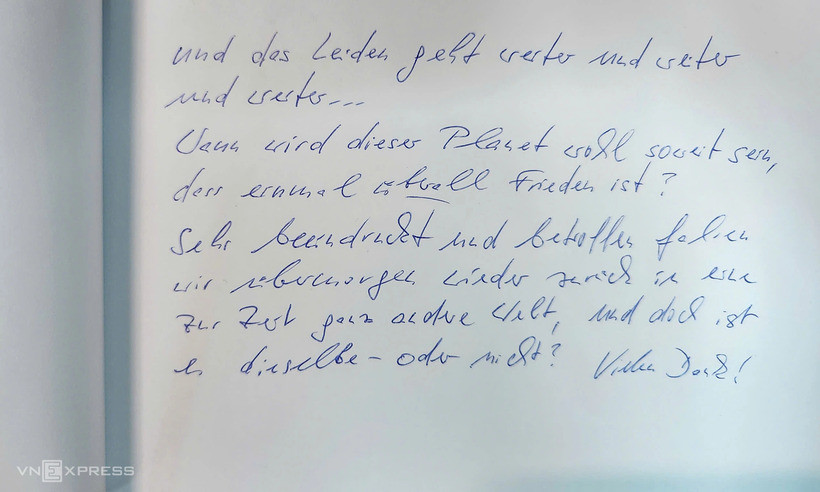 und das Leiden geht weiter und weiter
und weiter...
Wann wird dieser Planet wohl soweit sein,
dass einmal überall Frieden ist?
Sehr beeindruckt und betroffen fahren
wir übermorgen wieder zurück in eine
zur Zeit ganz andere Welt, und doch ist
es dieselbe – oder nicht? Vielen Dank!
VNEXPRESS